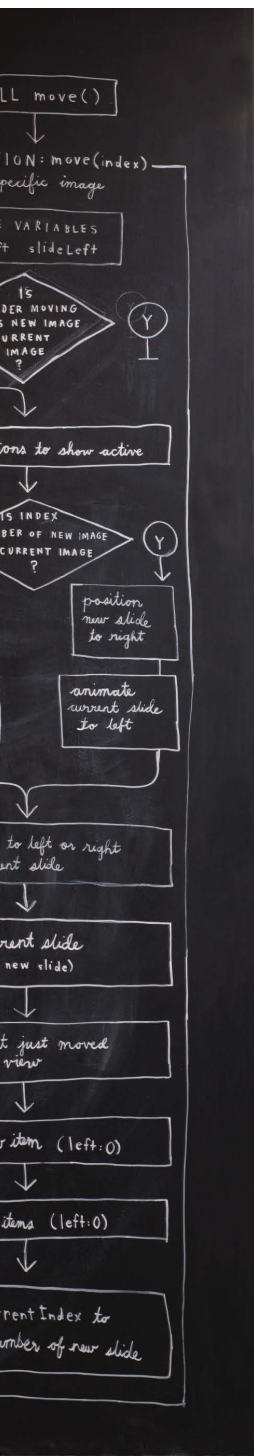 LL move()
ION: move(index)
pecific image
VARIABLES
slideLeft
IS
DER MOVING
S NEW IMAGE
URRENT
IMAGE
?
Y
ons to show active
IS INDEX
BER OF NEW IMAGE
CURRENT IMAGE
?
Y
position
new slide
to right
animate
current slide
to left
to left or right
ent slide
rent slide
new slide)
t just moved
view
item (left:0)
items (left:0)
rentIndex to
umber of new slide